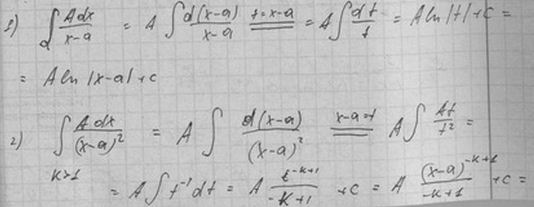 1) ∫ Adx/(x-a) = A ∫ d(x-a)/(x-a) t=x-a = A ∫ dt/t = A ln|t|+c =
= A ln|x-a|+c
2) ∫ A dx/(x-a)² = A ∫ d(x-a)/(x-a)² x-a=t A ∫ At/t² =
k>1 = A ∫ t⁻¹ dt = A t^(-k+1)/(-k+1) +c = A (x-a)^(-k+1)/(-k+1) +c =